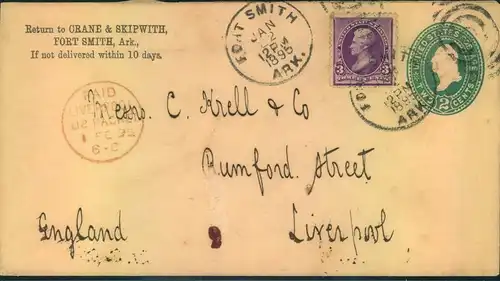 Return to CRANE & SKIPWITH,
FORT SMITH, Ark.,
If not delivered within 10 days.
FORT SMITH
JAN
2
12 PM
1895
ARK.
3
UNITED STATES
TWO 2 CENTS
12 PM
1895
ARK.
PAID
LIVERPOOL
US PACKET
Messrs. C. Krell & Co
Rumford Street
England Liverpool